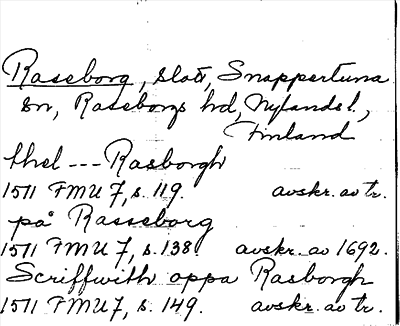 Raseborg, slott, Snappertuna
sn, Raseborgs hd, Nylands l.,
Finland
thel --- Rasborgh
1511 FMU 7, s. 119. avskr. av tr.
på Rasseborg
1511 FMU 7, s. 138. avskr. av 1692.
Scriffwith oppa Rasborgh
1511 FMU 7, s. 149. avskr. av tr.